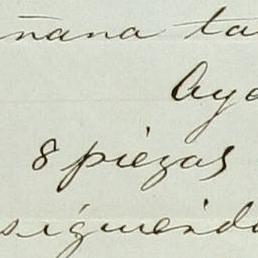 ñana ta
Aya
8 piezas
siguiendo